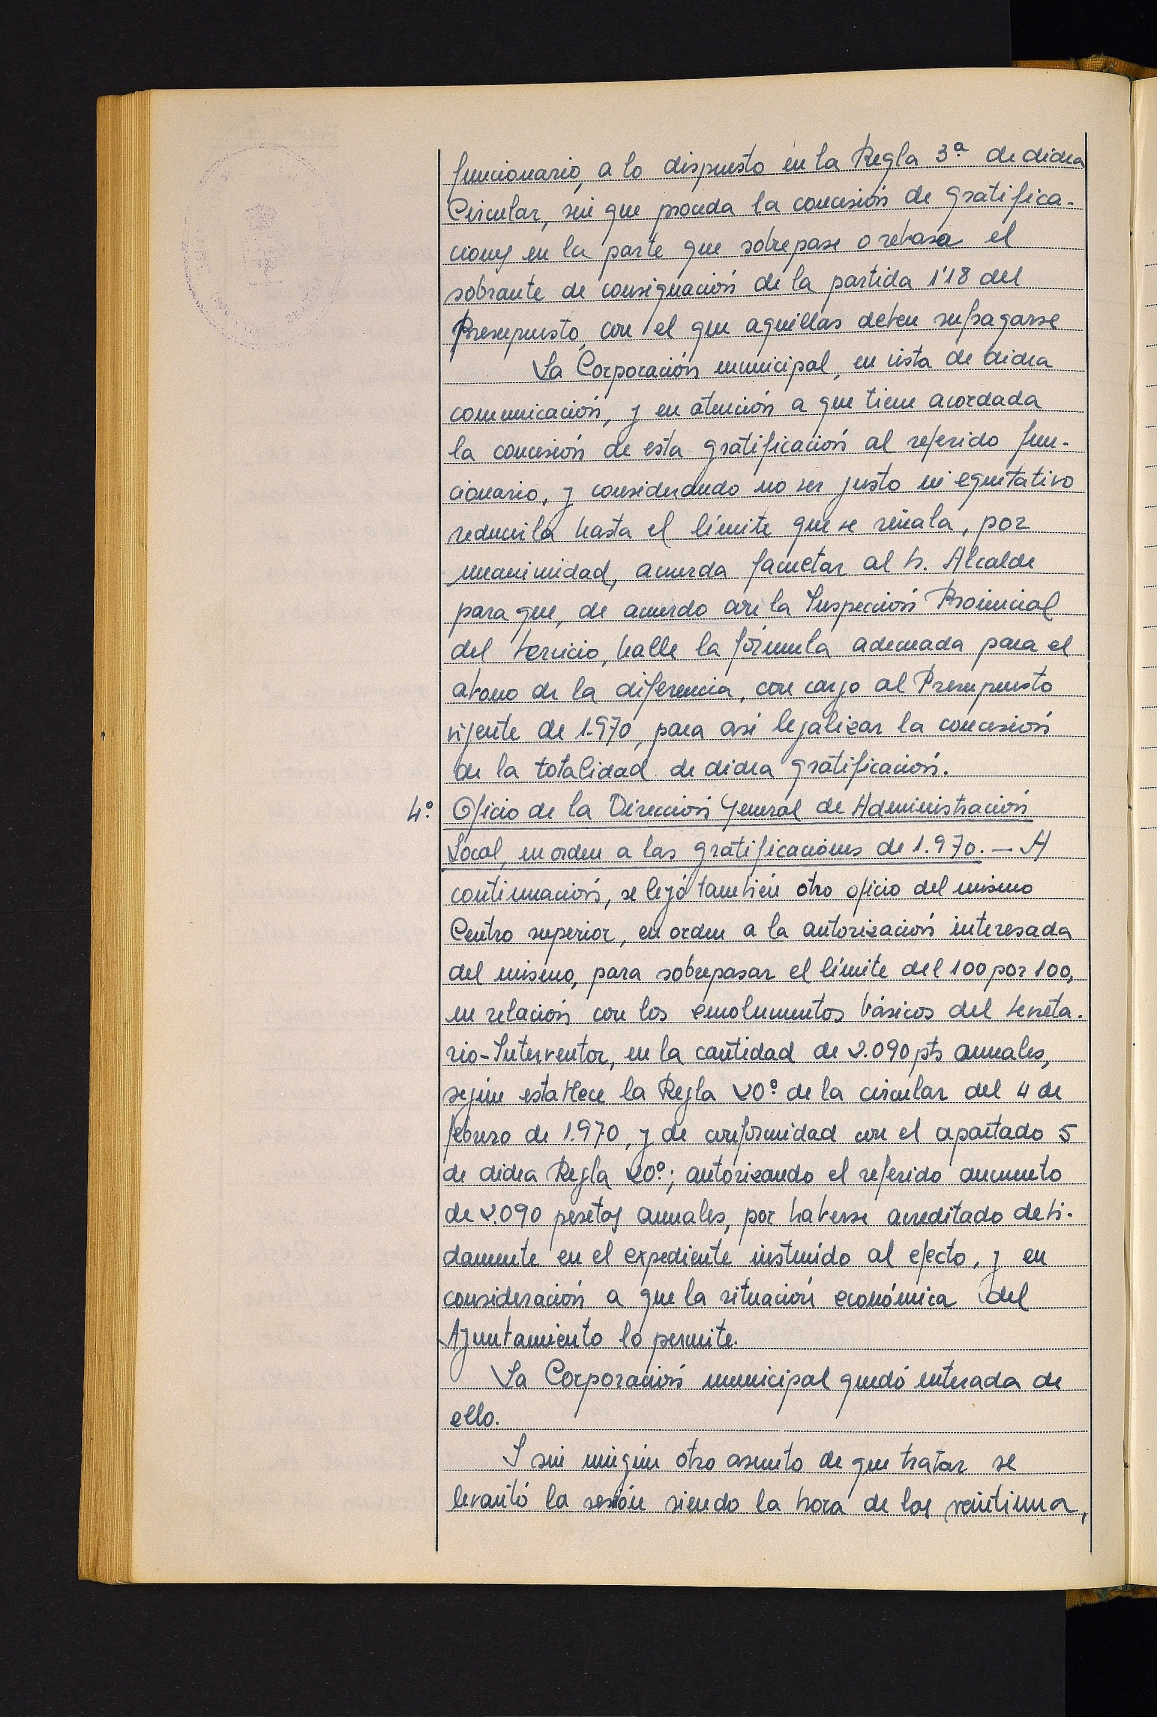 funcionario, a lo dispuesto en la Regla 3ª de dicha
Circular, sin que proceda la concesión de gratifica-
ciones en la parte que sobrepase o rebasa el
sobrante de consignación de la partida 1'18 del
Presupuesto, con el que aquéllas deben sufragarse
La Corporación municipal, en vista de dicha
comunicación, y en atención a que tiene acordada
la concesión de esta gratificación al referido fun-
cionario, y considerando no ser justo ni equitativo
reducirla hasta el límite que se señala, por
unanimidad, acuerda facultar al Sr. Alcalde
para que, de acuerdo con la Inspección Provincial
del Servicio, halle la fórmula adecuada para el
abono de la diferencia, con cargo al Presupuesto
vigente de 1.970, para así legalizar la concesión
de la totalidad de dicha gratificación.
4.º Oficio de la Dirección General de Administración
Local, en orden a las gratificaciónes de 1.970. — A
continuación, se leyó también otro oficio del mismo
Centro superior, en orden a la autorización interesada
del mismo, para sobrepasar el límite del 100 por 100,
en relación con los emolumentos básicos del Secreta-
rio-Interventor, en la cantidad de 2.090 pts anuales,
según establece la Regla 20º de la circular del 4 de
febrero de 1.970, y de conformidad con el apartado 5
de dicha Regla 20º; autorizando el referido aumento
de 2.090 pesetas anuales, por haberse acreditado debi-
damente en el expediente instruido al efecto, y en
consideración a que la situación económica del
Ayuntamiento lo permite.
La Corporación municipal quedó enterada de
ello.
Y sin ningún otro asunto de que tratar se
levantó la sesión siendo la hora de las veintiuna,